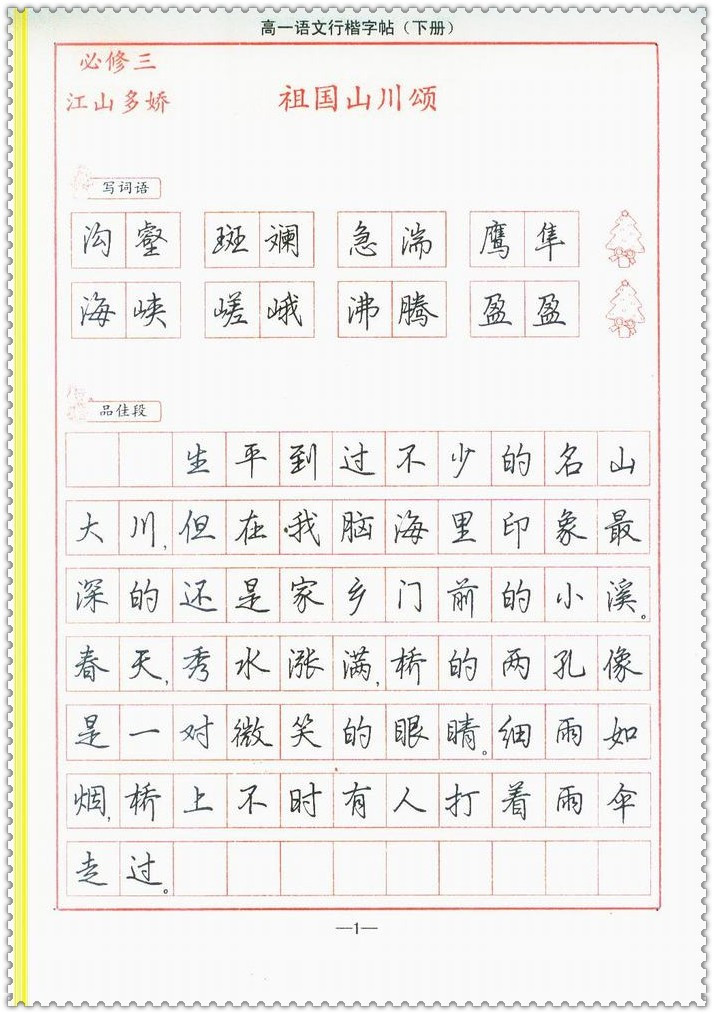 高一语文行楷字帖（下册）
必修三
江山多娇 祖国山川颂
写词语
沟壑 斑斓 急湍 鹰隼
海峡 嵯峨 沸腾 盈盈
品佳段
生平到过不少的名山
大川,但在我脑海里印象最
深的还是家乡门前的小溪。
春天,秀水涨满,桥的两孔像
是一对微笑的眼睛。细雨如
烟,桥上不时有人打着雨伞
走过。
—1—